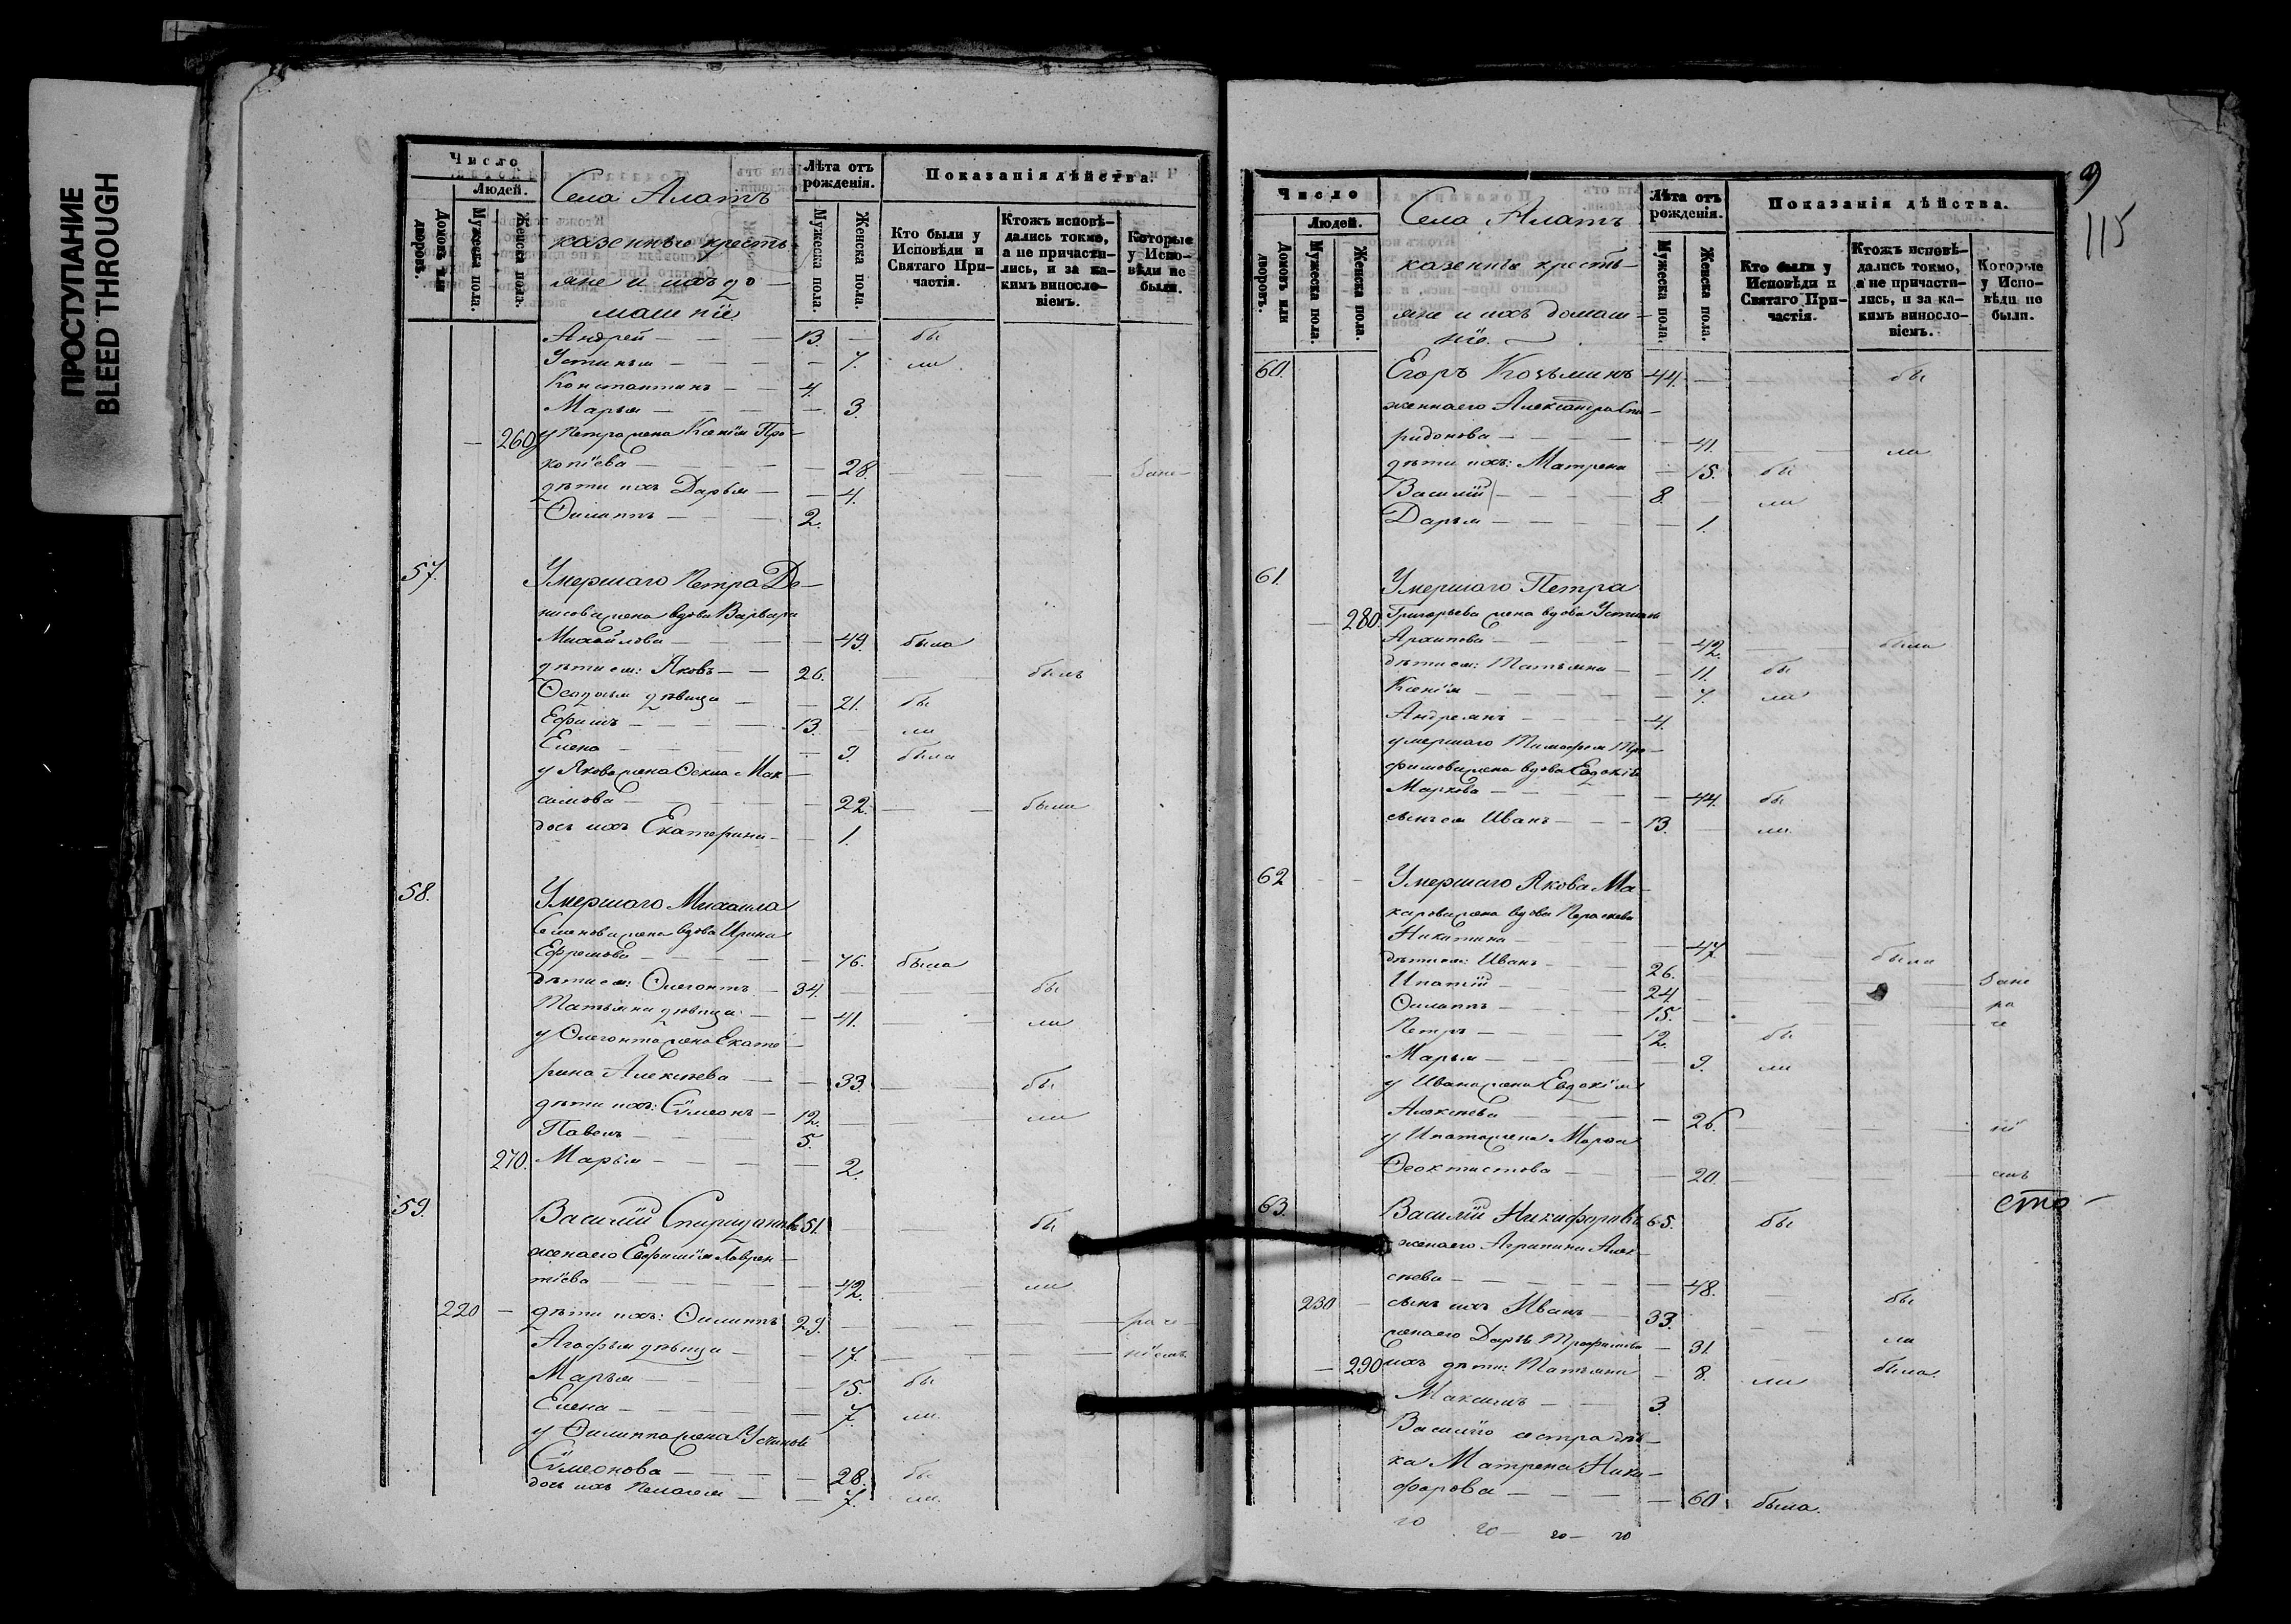 ПРОСТУПАНИЕ
BLEED THROUGH
Число
Людей.
Домовъ или дворовъ.
Мужеска пола.
Женска полъ.
Села Алатъ
казенныя кресть-
яне и ихъ до-
машніе
Лѣта отъ рожденія.
Мужеска пола.
Женска пола.
Показанія дѣйства.
Кто были у Исповѣди и Святаго При-частія.
Ктожъ исповѣ-дались токмо, а не причасти-лись, и за ка-кимъ винослo-віемъ.
Которые у Испо-вѣди не были.
Андрей — 13. — бы
Устинья — 7. ли
Константинъ — 4.
Марья — 3.
260 у Петра жена Ксенія Про-
копіева — 28. — Зане-
дѣти ихъ Дарья — 4.
Филиппъ — 2.
57. Умершаго Петра Де-
нисова жена вдова Варвара
Михайлова — 49. была
дѣти ея: Яковъ — 26. — былъ
Феодосья дѣвица — 21. бы
Ефимъ — 13. — ли
Елена — 9. была
у Якова жена Фекла Мак-
симова — 22. — были
дочь ихъ Екатерина — 1.
58. Умершаго Михаила
Семенова жена вдова Ирина
Ефремова — 76. была
дѣти ея: Флегонтъ — 34. — бы
Татьяна дѣвица — 41. — ли
у Флегонта жена Екате-
рина Алексѣева — 33. — бы
дѣти ихъ: Сѵмеонъ — 12. — ли
Павелъ — 5.
270. Марья — 2.
59. Василій Спиридоновъ 51. — бы
жена его Евфимія Лаврен-
тіева — 42. — ли
220 — дѣти ихъ: Филиппъ 29. — раче
Агафья дѣвица — 17. — ніемъ
Марья — 15. бы
Елена — 7. ли
у Филиппа жена Устинья
Сѵмеонова — 28. бы
дочь ихъ Пелагея — 7. ли.
9
115
Число
Людей.
Домовъ или дворовъ.
Мужеска пола.
Женска пола.
Села Алатъ
казенные кресть-
яне и ихъ домаш-
ніе.
Лѣта отъ рожденія.
Мужеска пола.
Женска пола.
Показанія дѣйства.
Кто были у Исповѣди и Святаго При-частія.
Ктожъ исповѣ-дались токмо, а не причасти-лись, и за ка-кимъ винослo-віемъ.
Которые у Испо-вѣди не были.
60. Егоръ Козьминъ 44. — бы
жена его Александра Спи-
ридонова — 41. — ли
дѣти ихъ: Матрена — 15. бы
Василій — 8. — ли
Дарья — 1.
61. Умершаго Петра
280. Григорьева жена вдова Устинья
Архипова — 42. — была
дѣти ея: Татьяна — 11. бы
Ксенія — 7. ли
Андреянъ — 4.
умершаго Тимофея Тро-
фимова жена вдова Евдокія
Маркова — 44. бы
сынъ ея Иванъ — 13. — ли.
62 Умершаго Якова Ма-
карова жена вдова Параскева
Никитина — 47. — была
дѣти ея: Иванъ — 26. — Зане
Ипатій — 24. — ра
Филиппъ — 15. — че
Петръ — 12. бы
Марья — 9. ли
у Ивана жена Евдокія
Алексѣева — 26. — ні
у Ипата жена Марфа
Феоктистова — 20. — емъ
63. Василій Никифоровъ 65. бы
жена его Агрипина Алек-
сѣева — 48. — бы
230 — сынъ ихъ Иванъ — 33.
жена его Дарья Трофимова — 31. — ли
290 ихъ дѣти: Татьяна — 8. ли была.
Максимъ — 3.
Василія сестра дѣв-
ка Матрена Ники-
форова — 60. была.
сто-
20 20— 20— 20